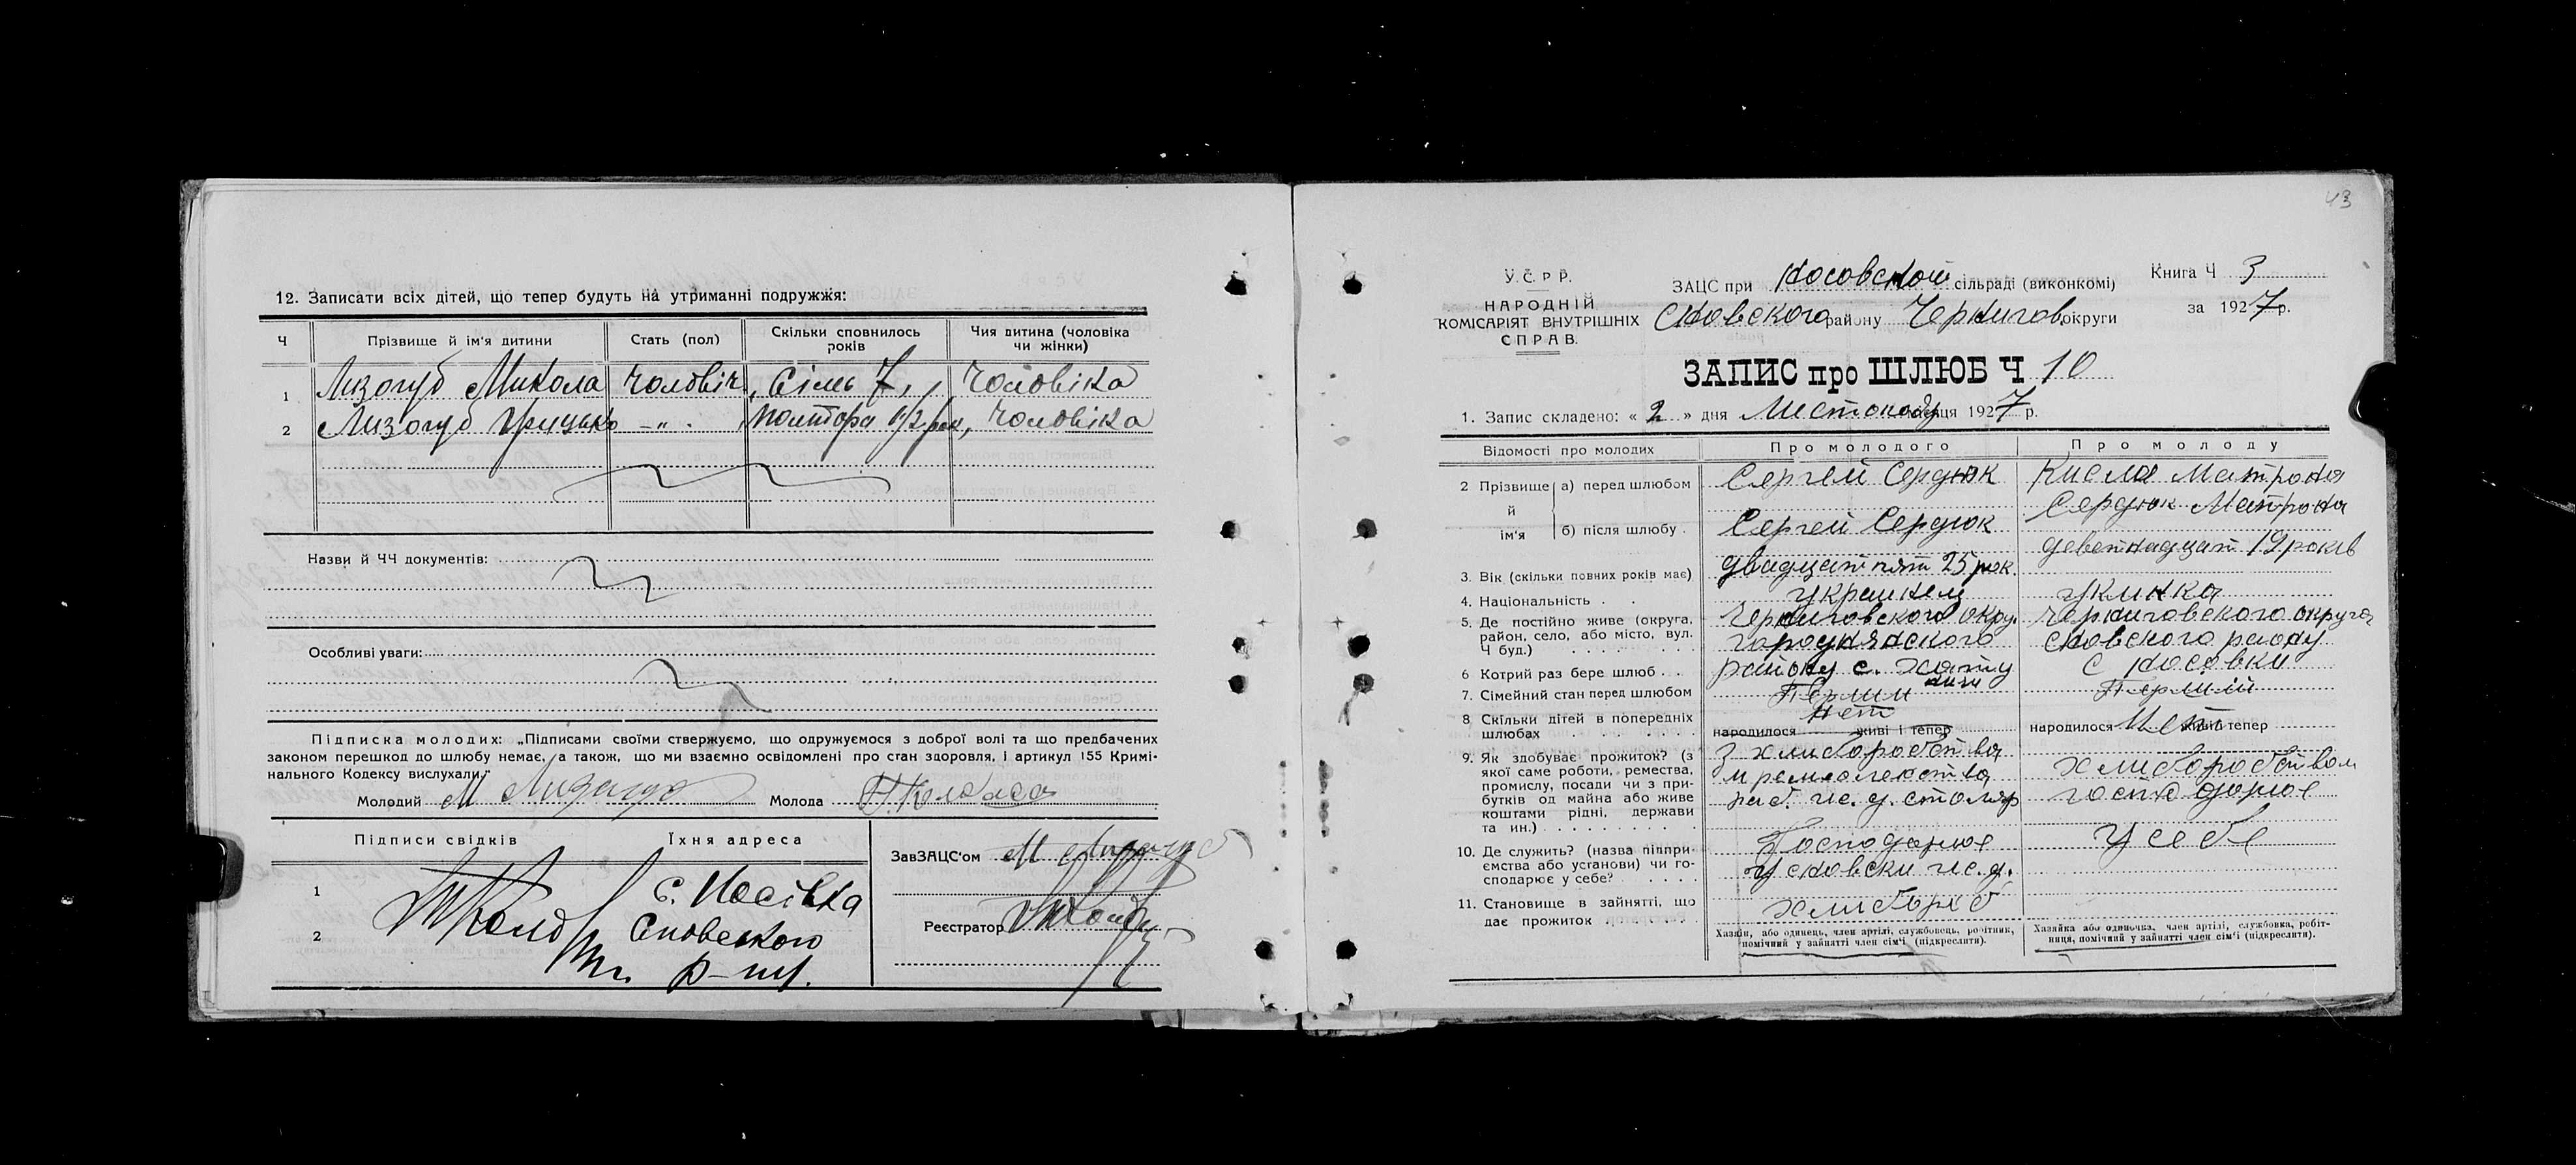 12. Записати всіх дітей, що тепер будуть на утриманні подружжя:
Ч
Прізвище й ім'я дитини
Стать (пол)
Скільки сповнилось років
Чия дитина (чоловіка чи жінки)
1 Лизогуб Микола чоловіч, сімь 7, чоловіка
2 Лизогуб Грицько —"— полтора 1/2 рок, чоловіка
Назви й ЧЧ документів:
Особливі уваги:
Підписка молодих: „Підписами своїми стверджуємо, що одружуємося з доброї волі та що предбачених
законом перешкод до шлюбу немає, а також, що ми взаємно освідомлені про стан здоровля, і артикул 155 Кримі-
нального Кодексу вислухали."
Молодий М Лизогуб Молода
Підписи свідків Їхня адреса
1 с. Носівка
2 Сновського
р-ну.
ЗавЗАЦС'ом М Лизогуб
Реєстратор
43
У.С.Р.Р.
НАРОДНІЙ
КОМІСАРІЯТ ВНУТРІШНІХ
СПРАВ.
ЗАЦС при Носовской сільраді (виконкомі)
Сновского району Чернигов округи
Книга Ч 3
за 1927 р.
ЗАПИС про ШЛЮБ Ч 10
1. Запис складено: « 2 » дня Листопаду місяця 1927 р.
Відомості про молодих
Про молодого
Про молоду
2 Прізвище й ім'я
а) перед шлюбом Сергей Сердюк Кисла Матрона
б) після шлюбу Сергей Сердюк Сердюк Матрона
3. Вік (скільки повних років має) двадцат пят 25 рок. деветнадцат 19 років
4. Національність украинец укпинка
5. Де постійно живе (округа, район, село, або місто, вул. Ч буд.)
Черниговского окру. городнянского району с. Хотуничи
Черниговского округа сновского раиону с Носовки
6 Котрий раз бере шлюб Перший Перший
7. Сімейний стан перед шлюбом
8 Скільки дітей в попередніх шлюбах нет
народилося живі і тепер
народилося Нет живі тепер
9. Як здобуває прожиток? (з якої саме роботи, ремества, промислу, посади чи з прибутків од майна або живе коштами рідні, держави та ин.)
З хлиборобства
и ремисленства
раб. ж.д. столяр
хлиборобством
господарює
10. Де служить? (назва підприємства або установи) чи господарює у себе?
Господарює
у сновски ж.д.
у себе
11. Становище в зайнятті, що дає прожиток
хлибороб
Хазяїн, або одинець, член артілі, службовець, робітник,
помічний у зайнятті член сім'ї (підкреслити).
Хазяйка або одиночка, член артілі, службовка, робіт-
ниця, помічний у зайнятті член сім'ї (підкреслити).